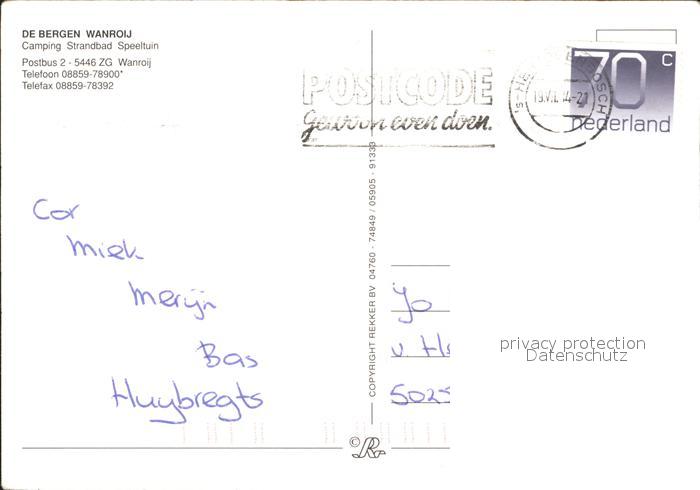 DE BERGEN WANROIJ
Camping Strandbad Speeltuin
Postbus 2 - 5446 ZG Wanroij
Telefoon 08859-78900*
Telefax 08859-78392
POSTCODE
Gewoon even doen.
70 c
nederland
Cor
Miek
Merijn
Bas
Huybregts
COPYRIGHT REKKER BV 04760 - 74849 / 05905 - 91333
Jo
v
privacy protection
Datenschutz
© R